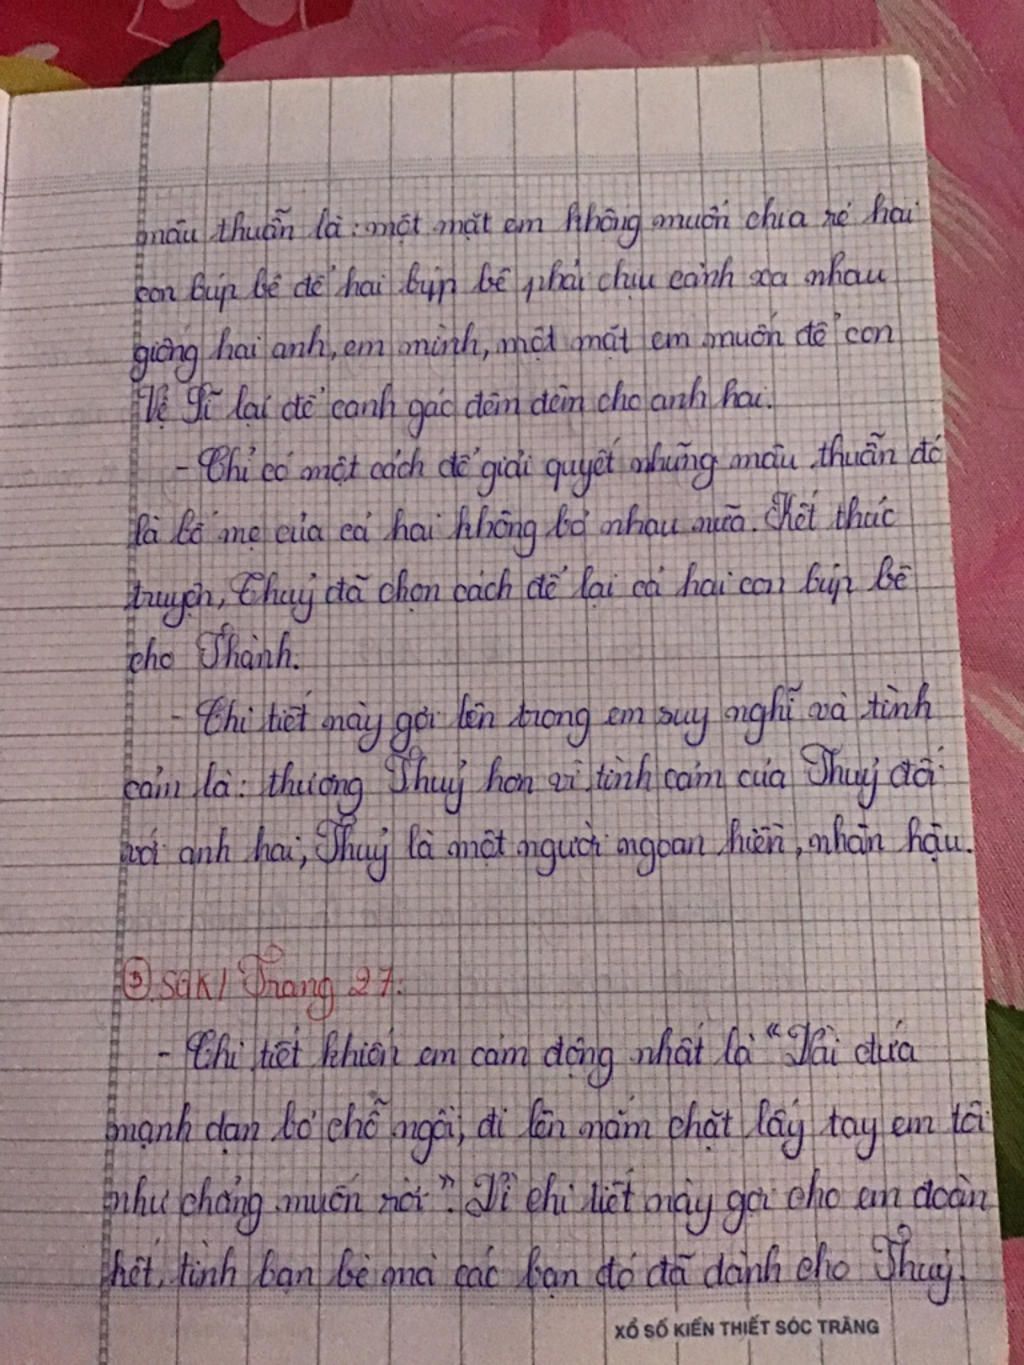 mâu thuẫn là: một mặt em không muốn chia rẽ hai
con búp bê để hai búp bê phải chịu cảnh xa nhau
giống hai anh, em mình, một mặt em muốn để con
Vệ Sĩ lại để canh gác đêm đêm cho anh hai.
- Chỉ có một cách để giải quyết những mâu thuẫn đó
là bố mẹ của cả hai không bỏ nhau nữa. Kết thúc
truyện, Thuỷ đã chọn cách để lại cả hai con búp bê
cho Thành.
- Chi tiết này gợi lên trong em suy nghĩ và tình
cảm là: thương Thuỷ hơn vì tình cảm của Thuỷ đối
với anh hai, Thuỷ là một người ngoan hiền, nhân hậu.
③ SGK/ Trang 27:
- Chi tiết khiến em cảm động nhất là "Vài đứa
mạnh dạn bỏ chỗ ngồi, đi lên nắm chặt lấy tay em tôi
như chẳng muốn rời". Vì chi tiết này gợi cho em đoàn
kết, tình bạn bè mà các bạn đó đã dành cho Thuỷ.
XỔ SỐ KIẾN THIẾT SÓC TRĂNG